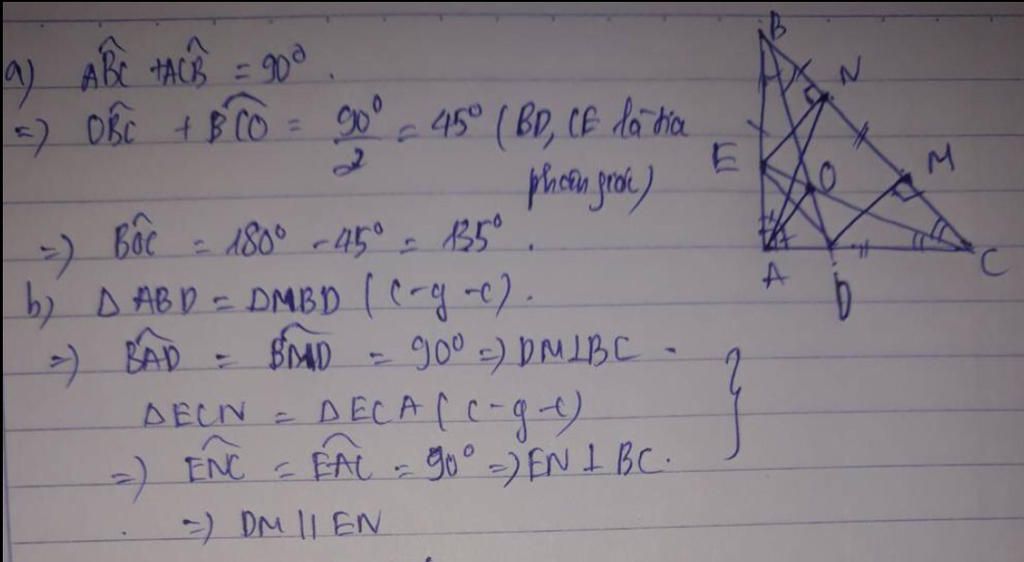 a) ABC + ACB = 90°.
=) OBC + BCO = 90°/2 = 45° (BD, CE là tia
phân giác)
=) BOC = 180° - 45° = 135°.
b) Δ ABD = ΔMBD (c-g-c).
=) BAD = BMD = 90° =) DM⊥BC.
ΔECN = ΔECA (c-g-c)
=) ENC = EAC = 90° =) EN⊥BC.
=) DM // EN
B
N
E
O
M
A
D
C